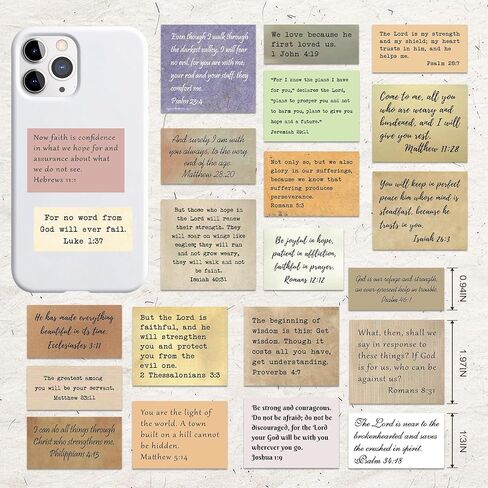 Now faith is confidence
in what we hope for and
assurance about what
we do not see.
Hebrews 11:1
For no word from
God will ever fail.
Luke 1:37
Even though I walk through
the darkest valley, I will fear
no evil, for you are with me;
your rod and your staff, they
comfort me.
Psalm 23:4
We love because he
first loved us.
1 John 4:19
The Lord is my strength
and my shield; my heart
trusts in him, and he
helps me.
Psalm 28:7
"For I know the plans I have
for you," declares the Lord,
"plans to prosper you and not
to harm you, plans to give you
hope and a future."
Jeremiah 29:11
Come to me, all you
who are weary and
burdened, and I will
give you rest.
Matthew 11:28
And surely I am with
you always, to the very
end of the age.
Matthew 28:20
Not only so, but we also
glory in our sufferings,
because we know that
suffering produces
perseverance.
Romans 5:3
You will keep in perfect
peace him whose mind is
steadfast, because he
trusts in you.
Isaiah 26:3
But those who hope in
the Lord will renew
their strength. They
will soar on wings like
eagles; they will run
and not grow weary,
they will walk and not
be faint.
Isaiah 40:31
Be joyful in hope,
patient in affliction,
faithful in prayer.
Romans 12:12
God is our refuge and strength,
an ever-present help in trouble.
Psalm 46:1
0.94IN
He has made everything
beautiful in its time.
Ecclesiastes 3:11
But the Lord is
faithful, and he
will strengthen
you and protect
you from the
evil one.
2 Thessalonians 3:3
The beginning of
wisdom is this: Get
wisdom. Though it
costs all you have,
get understanding.
Proverbs 4:7
What, then, shall we
say in response to
these things? If God
is for us, who can be
against us?
Romans 8:31
1.97IN
The greatest among
you will be your servant.
Matthew 23:11
I can do all things through
Christ who strengthens me.
Philippians 4:13
You are the light of
the world. A town
built on a hill cannot
be hidden.
Matthew 5:14
Be strong and courageous.
Do not be afraid; do not be
discouraged, for the Lord
your God will be with you
wherever you go.
Joshua 1:9
The Lord is near to the
brokenhearted and saves
the crushed in spirit.
Psalm 34:18
1.3IN